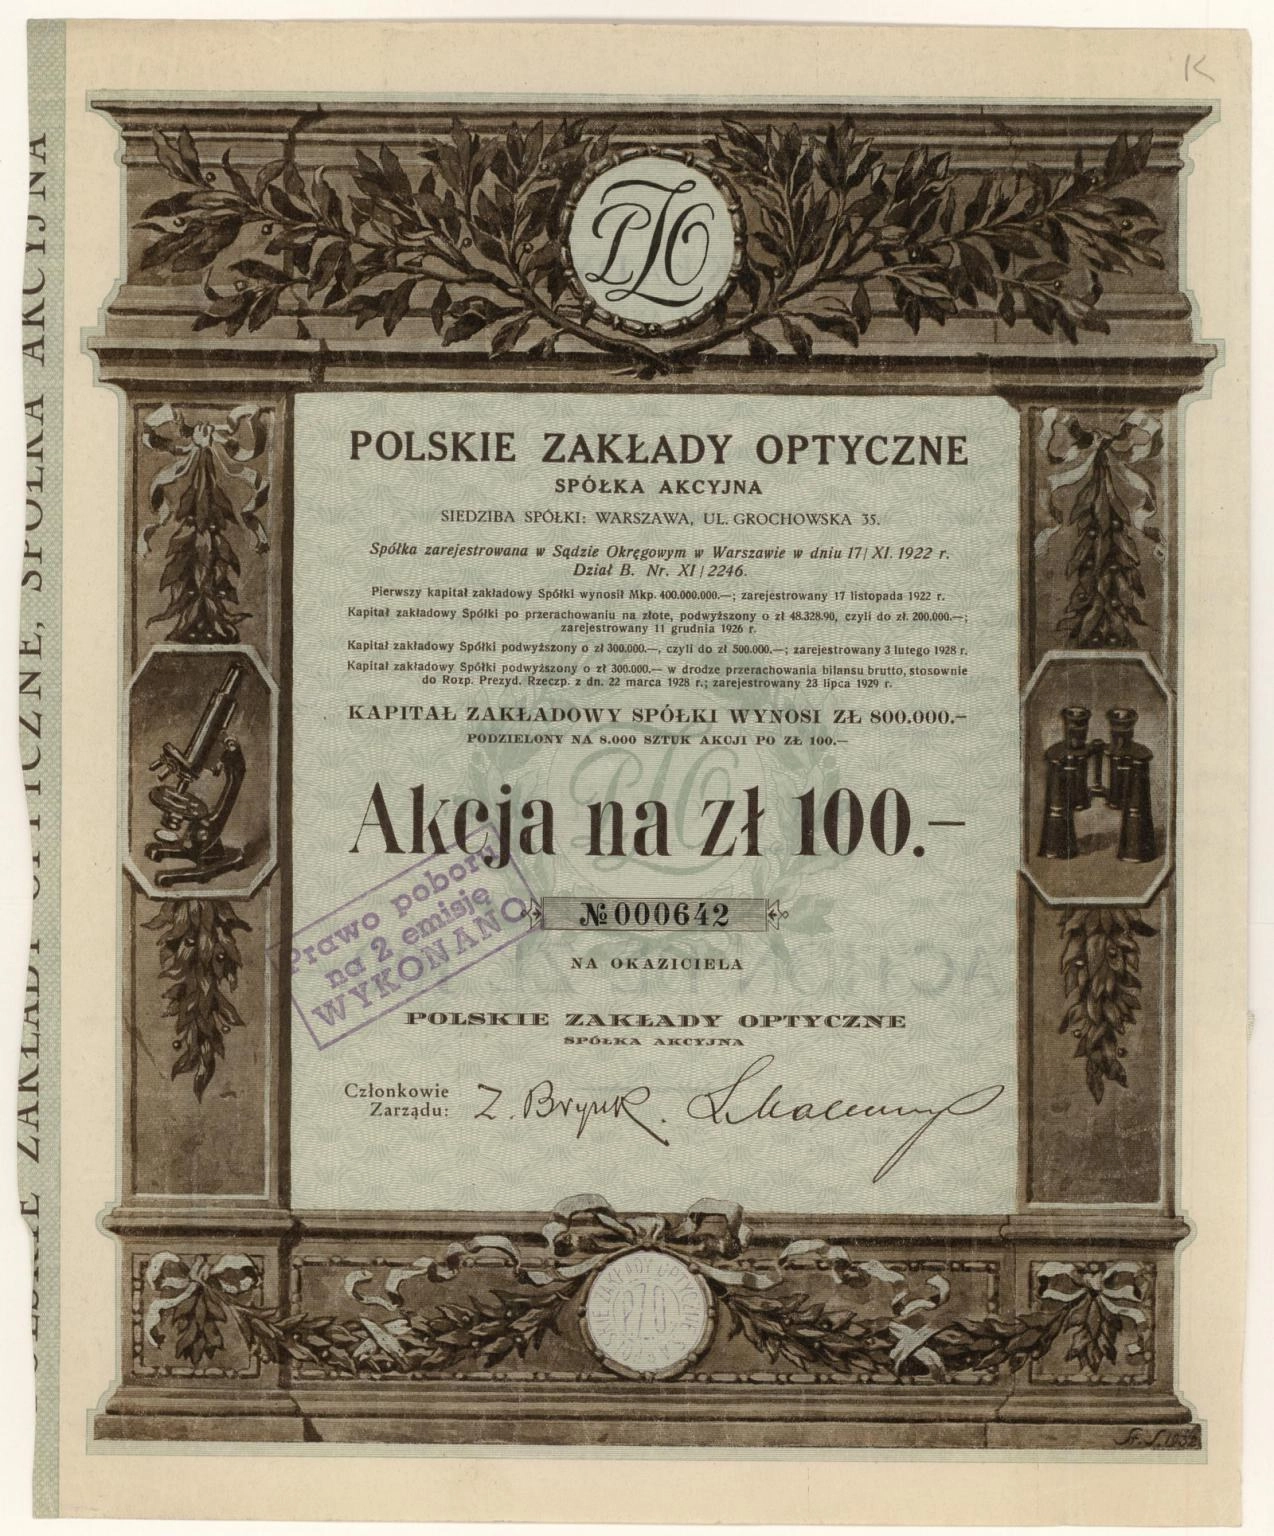 K
PZO
POLSKIE ZAKŁADY OPTYCZNE
SPÓŁKA AKCYJNA
SIEDZIBA SPÓŁKI: WARSZAWA, UL. GROCHOWSKA 35.
Spółka zarejestrowana w Sądzie Okręgowym w Warszawie w dniu 17/XI. 1922 r.
Dział B. Nr. XI/2246.
Pierwszy kapitał zakładowy Spółki wynosił Mkp. 400.000.000.—; zarejestrowany 17 listopada 1922 r.
Kapitał zakładowy Spółki po przerachowaniu na złote, podwyższony o zł 48.328.90, czyli do zł. 200.000.—;
zarejestrowany 11 grudnia 1926 r.
Kapitał zakładowy Spółki podwyższony o zł 300.000.—, czyli do zł 500.000.—; zarejestrowany 3 lutego 1928 r.
Kapitał zakładowy Spółki podwyższony o zł 300.000.— w drodze przerachowania bilansu brutto, stosownie
do Rozp. Prezyd. Rzeczp. z dn. 22 marca 1928 r.; zarejestrowany 23 lipca 1929 r.
KAPITAŁ ZAKŁADOWY SPÓŁKI WYNOSI ZŁ 800.000.—
PODZIELONY NA 8.000 SZTUK AKCJI PO ZŁ 100.—
PZO
Akcja na zł 100.—
Prawo poboru
na 2 emisję
WYKONANO
№ 000642
NA OKAZICIELA
POLSKIE ZAKŁADY OPTYCZNE
SPÓŁKA AKCYJNA
Członkowie
Zarządu:
Z. Brynk.
POLSKIE ZAKŁADY OPTYCZNE S.A.
PZO
POLSKIE ZAKŁADY OPTYCZNE, SPÓŁKA AKCYJNA